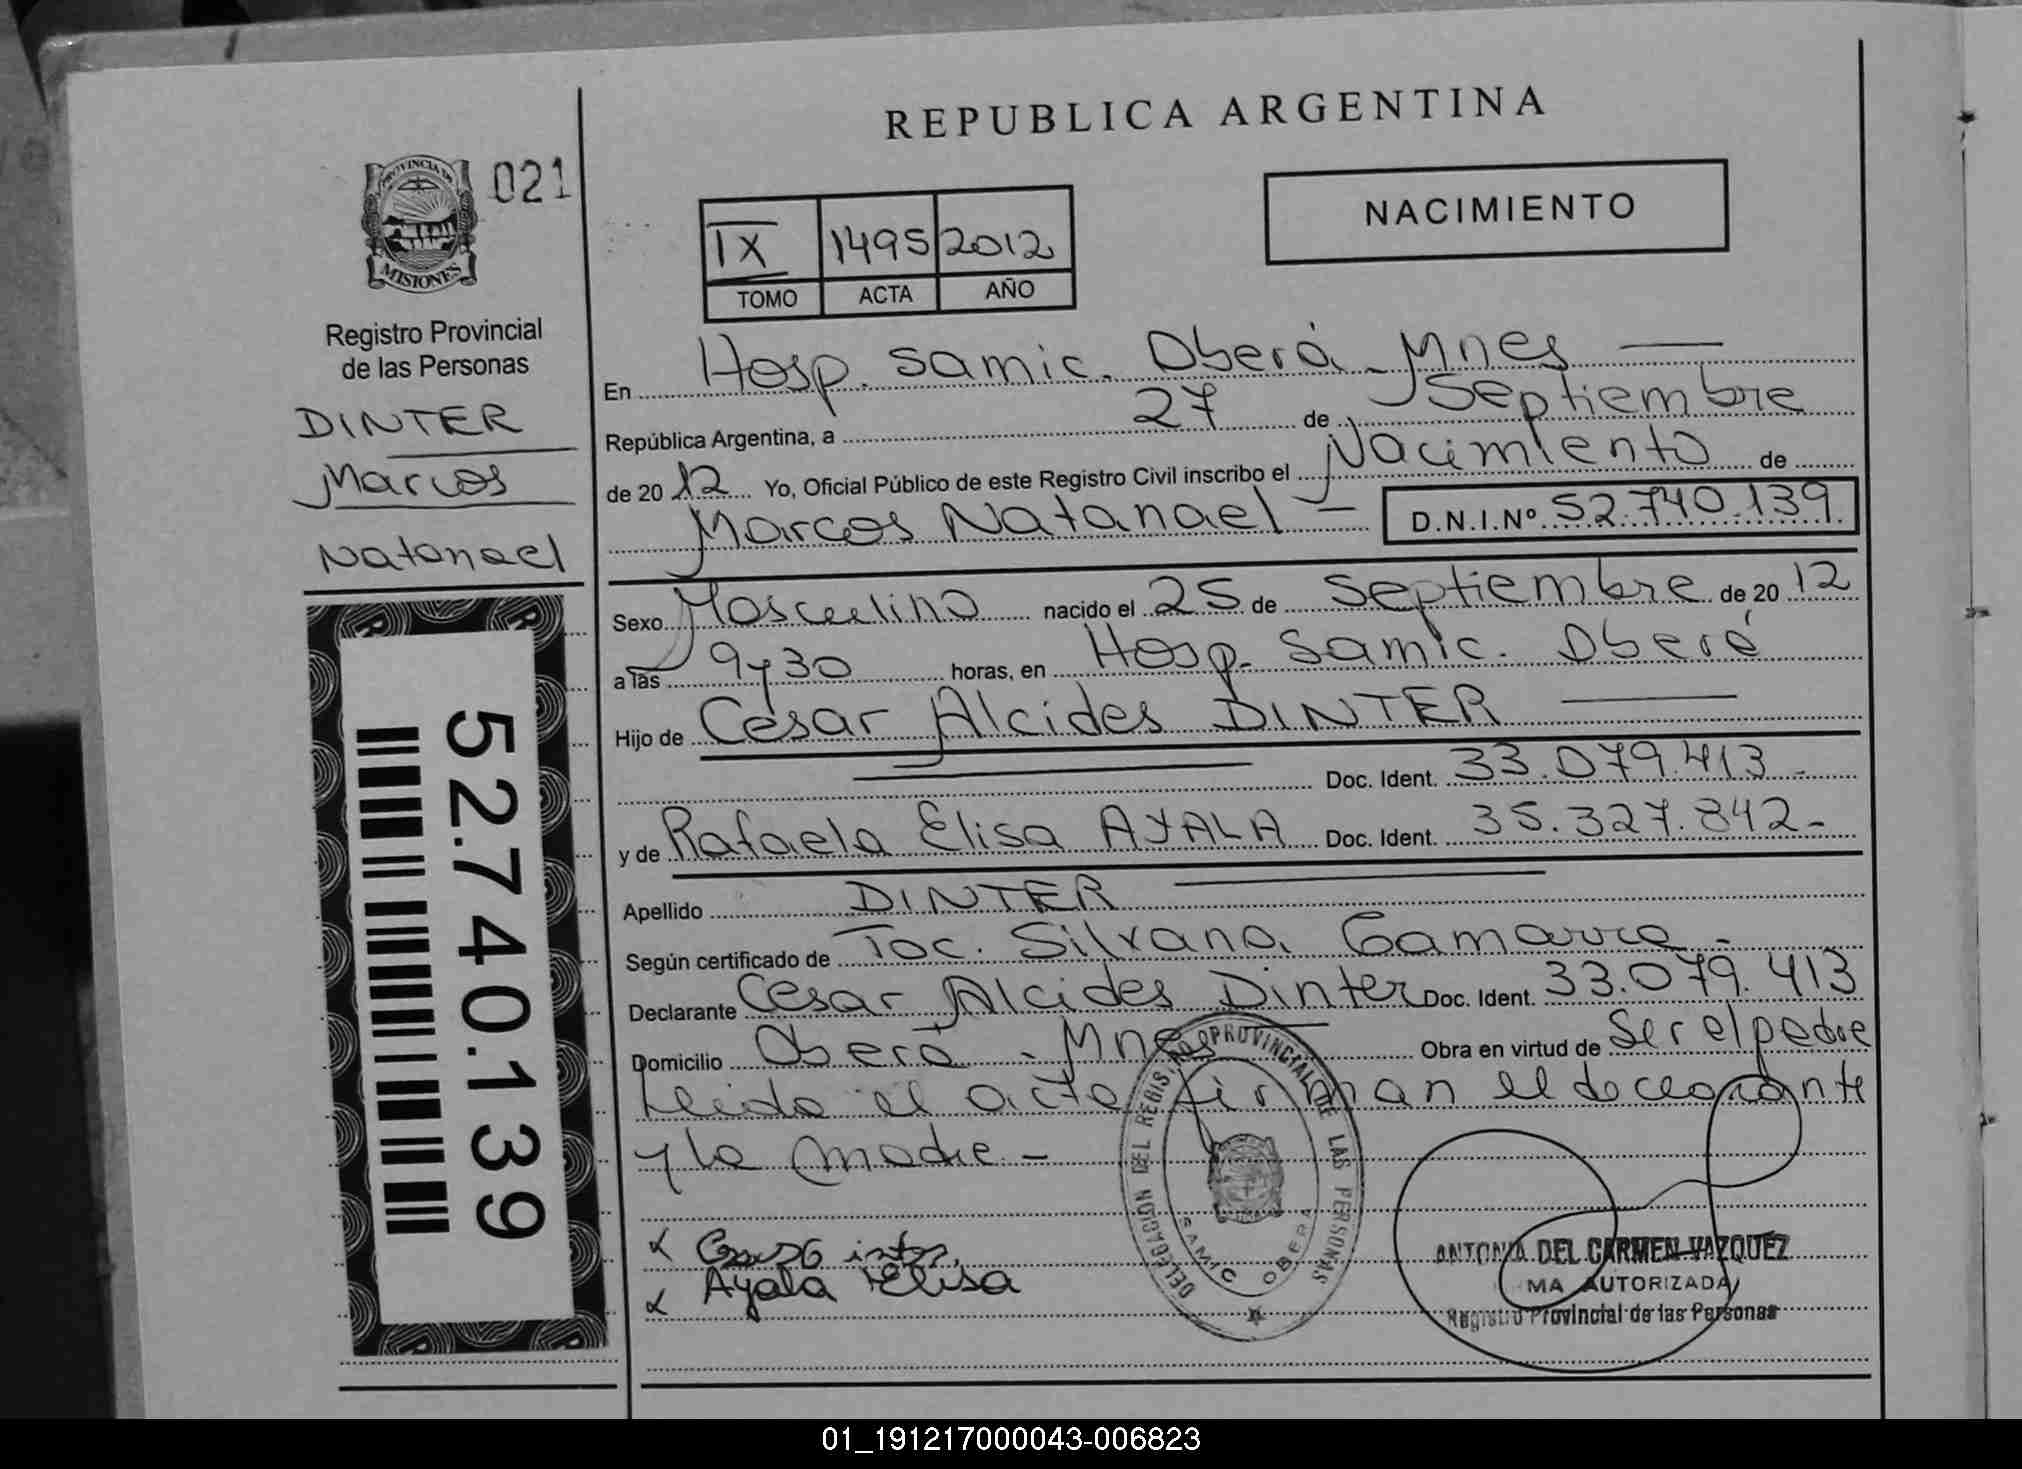 REPUBLICA ARGENTINA
PROVINCIA DE
MISIONES
021
Registro Provincial
de las Personas
DINTER
Marcos
Natanael
52.740.139
IX 1495 2012
TOMO ACTA AÑO
NACIMIENTO
En Hosp. Samic. Oberá Mnes
República Argentina, a 27 de Septiembre
de 2012 Yo, Oficial Público de este Registro Civil inscribo el Nacimiento de
Marcos Natanael D.N.I.Nº 52.740.139
Sexo Masculino nacido el 25 de Septiembre de 2012
a las 9y30 horas, en Hosp. Samic. Oberá
Hijo de César Alcides DINTER
Doc. Ident. 33.079.413
y de Rafaela Elisa AYALA Doc. Ident. 35.327.842
Apellido DINTER
Según certificado de Toc. Silvana Gamarra
Declarante Cesar Alcides Dinter Doc. Ident. 33.079.413
Domicilio Oberá - Mnes Obra en virtud de Ser el padre
Leida el acta firman el declarante
y la madre
Ayala Elisa
DELEGACION DEL REGISTRO PROVINCIAL DE LAS PERSONAS
SAMIC OBERA
ANTONIA DEL CARMEN VAZQUEZ
MA AUTORIZADA
Registro Provincial de las Personas
01_191217000043-006823